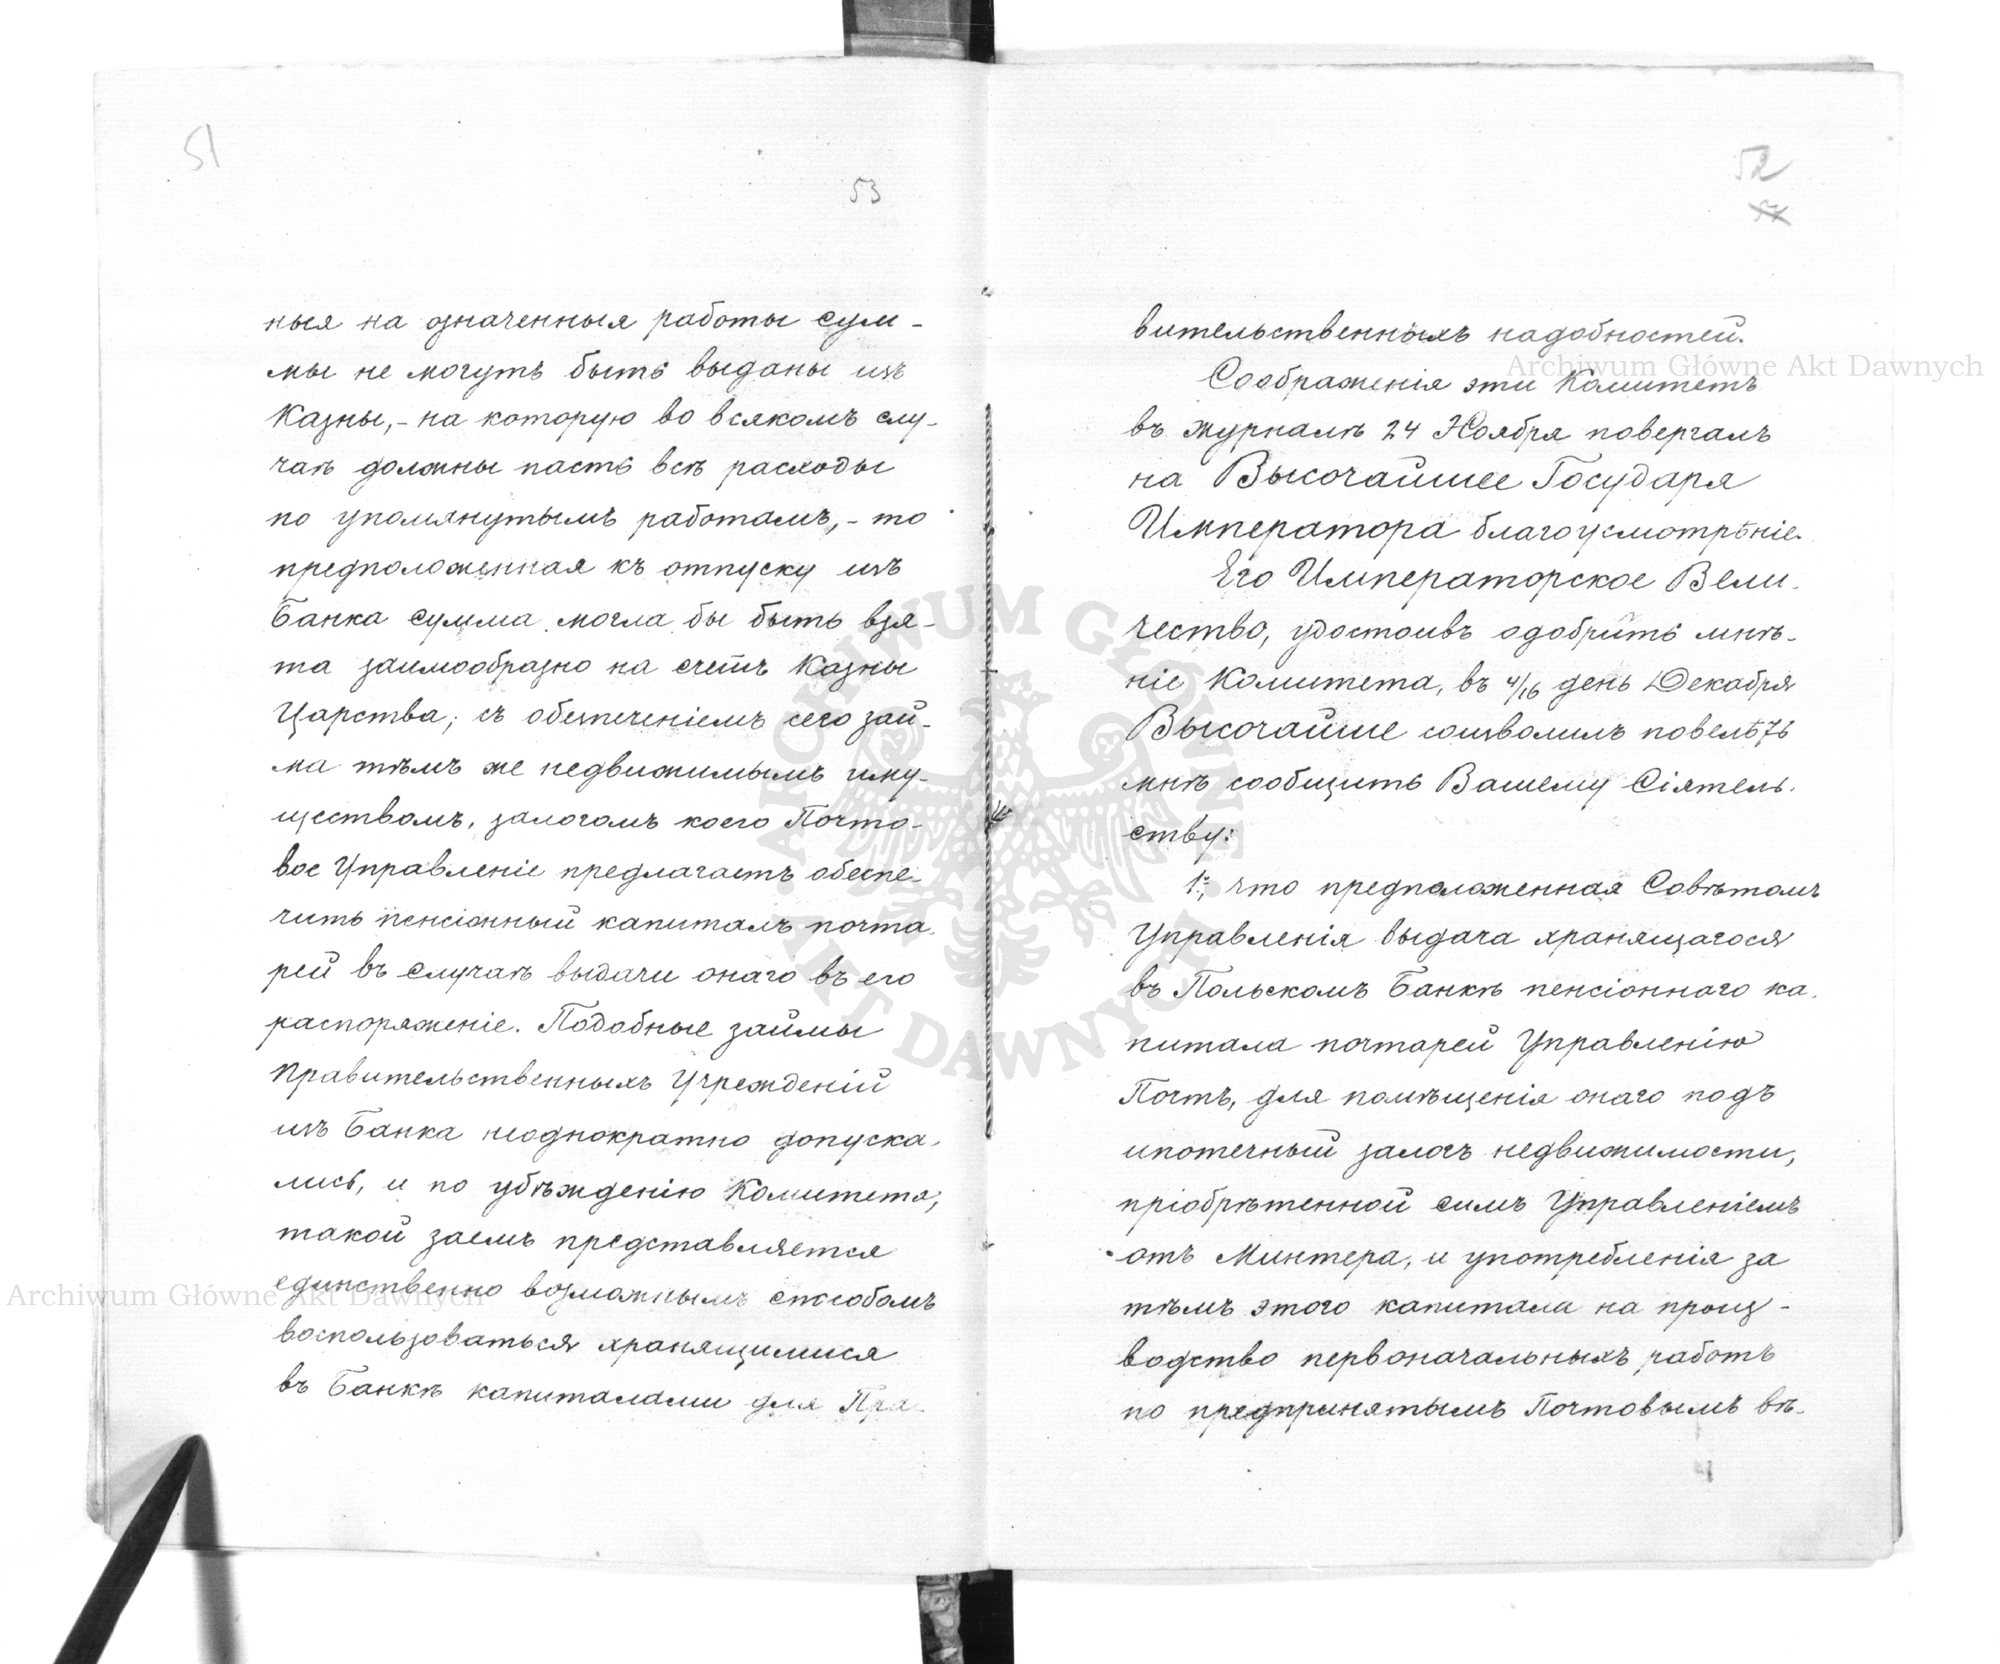 51
53
ныя на означенныя работы сум-
мы не могутъ быть выданы изъ
Казны,- на которую во всякомъ слу-
чаѣ должны пасть всѣ расходы
по упомянутымъ работамъ,- то
предположенная къ отпуску изъ
Банка сумма могла бы быть взя-
та заимообразно на счетъ Казны
Царства, съ обезпеченіемъ сего зай-
ма тѣмъ же недвижимымъ иму-
ществомъ, залогомъ коего Почто-
вое Управленіе предлагаетъ обезпе-
чить пенсіонный капиталъ почта-
рей въ случаѣ выдачи онаго въ его
распоряженіе. Подобные займы
Правительственныхъ Учрежденій
изъ Банка неоднократно допуска-
лись, и по убѣжденію Комитета,
такой заемъ представляется
единственно возможнымъ способомъ
воспользоваться хранящимися
въ Банкѣ капиталами для Пра-
52
вительственныхъ надобностей.
Соображенія эти Комитетъ
въ журналѣ 24 Ноября повергалъ
на Высочайшее Государя
Императора благоусмотрѣніе.
Его Императорское Вели-
чество, удостоивъ одобрить мнѣ-
ніе Комитета, въ 4/16 день Декабря
Высочайше соизволилъ повелѣть
мнѣ сообщить Вашему Сіятель-
ству:
1º, что предположенная Совѣтомъ
Управленія выдача хранящагося
въ Польскомъ Банкѣ пенсіоннаго ка-
питала почтарей Управленію
Почтъ, для помѣщенія онаго подъ
ипотечный залогъ недвижимости,
пріобрѣтенной симъ Управленіемъ
отъ Минтера, и употребленія за
тѣмъ этого капитала на произ-
водство первоначальныхъ работъ
по предпринятымъ Почтовымъ вѣ-
Archiwum Główne Akt Dawnych
Archiwum Główne Akt Dawnych
ARCHIWUM GŁÓWNE AKT DAWNYCH